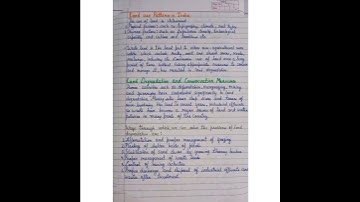 Land use Pattern in India
The use of land is determined
Physical factors such as topography, climate, soil types
Human factors such as population density, technological
capability and culture and traditions etc.
Waste land is the land put to other non-agricultural uses
includes rocky, arid and desert areas, roads,
railways, industry etc. Continuous use of land over a long
period of time without taking appropriate measures to conserve
and manage it, has resulted in land degradation.
Land Degradation and Conservation Measures
Human activities such as deforestation, overgrazing, mining
and quarrying have contributed significantly to land
degradation. Mining sites leave deep scars and traces of
over burdening the land. In recent years, industrial effluents
as waste have become a major source of land and water
pollution in many parts of the country.
Ways through which we can solve the problems of land
degradation are:
1. Afforestation and proper management of grazing
2. Planting of shelter belts of plants
3. Stabilization of sand dunes by growing thorny bushes
4. Proper management of waste lands
5. Control of mining activities
6. Proper discharge and disposal of industrial effluents and
wastes after treatment